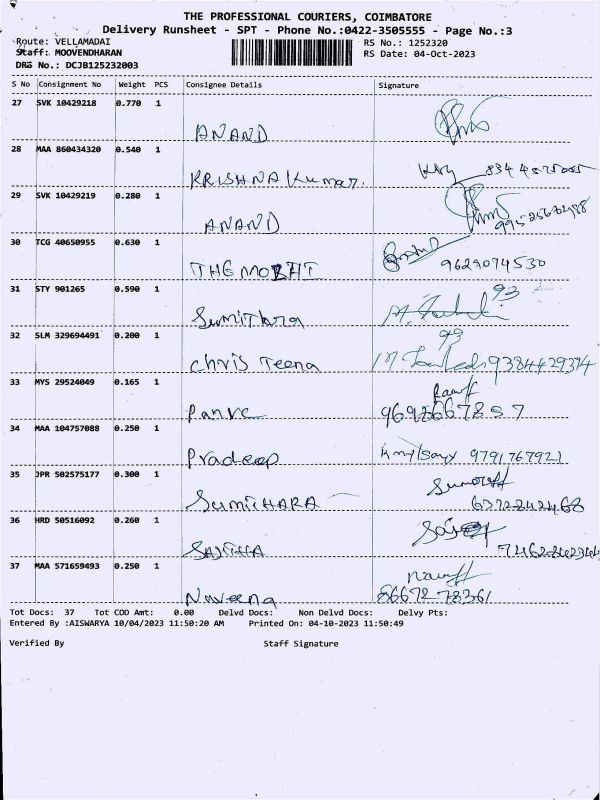 THE PROFESSIONAL COURIERS, COIMBATORE
Delivery Runsheet - SPT - Phone No.:0422-3505555 - Page No.:3
Route: VELLAMADAI
RS No.: 1252320
Staff: MOOVENDHARAN
RS Date: 04-Oct-2023
DRS No.: DCJB125232003
S No Consignment No Weight PCS Consignee Details Signature
27 SVK 10429218 0.770 1
ANAND
28 MAA 860434320 0.540 1
KRISHNA Kumar.
29 SVK 10429219 0.280 1
ANAND
30 TCG 40650955 0.630 1
9629074530
31 STY 901265 0.590 1
Sumithra
93
32 SLM 329694491 0.200 1
93
Chris Teena 9384429374
33 MYS 29524049 0.165 1
34 MAA 104757088 0.250 1
Pradeep 9791767921
35 JPR 502575177 0.300 1
SUMITHARA
36 HRD 50516092 0.260 1
SAJITHA
37 MAA 571659493 0.250 1
Naveena 8667278361
Tot Docs: 37 Tot COD Amt: 0.00 Delvd Docs: Non Delvd Docs: Delvy Pts:
Entered By :AISWARYA 10/04/2023 11:50:20 AM Printed On: 04-10-2023 11:50:49
Verified By Staff Signature